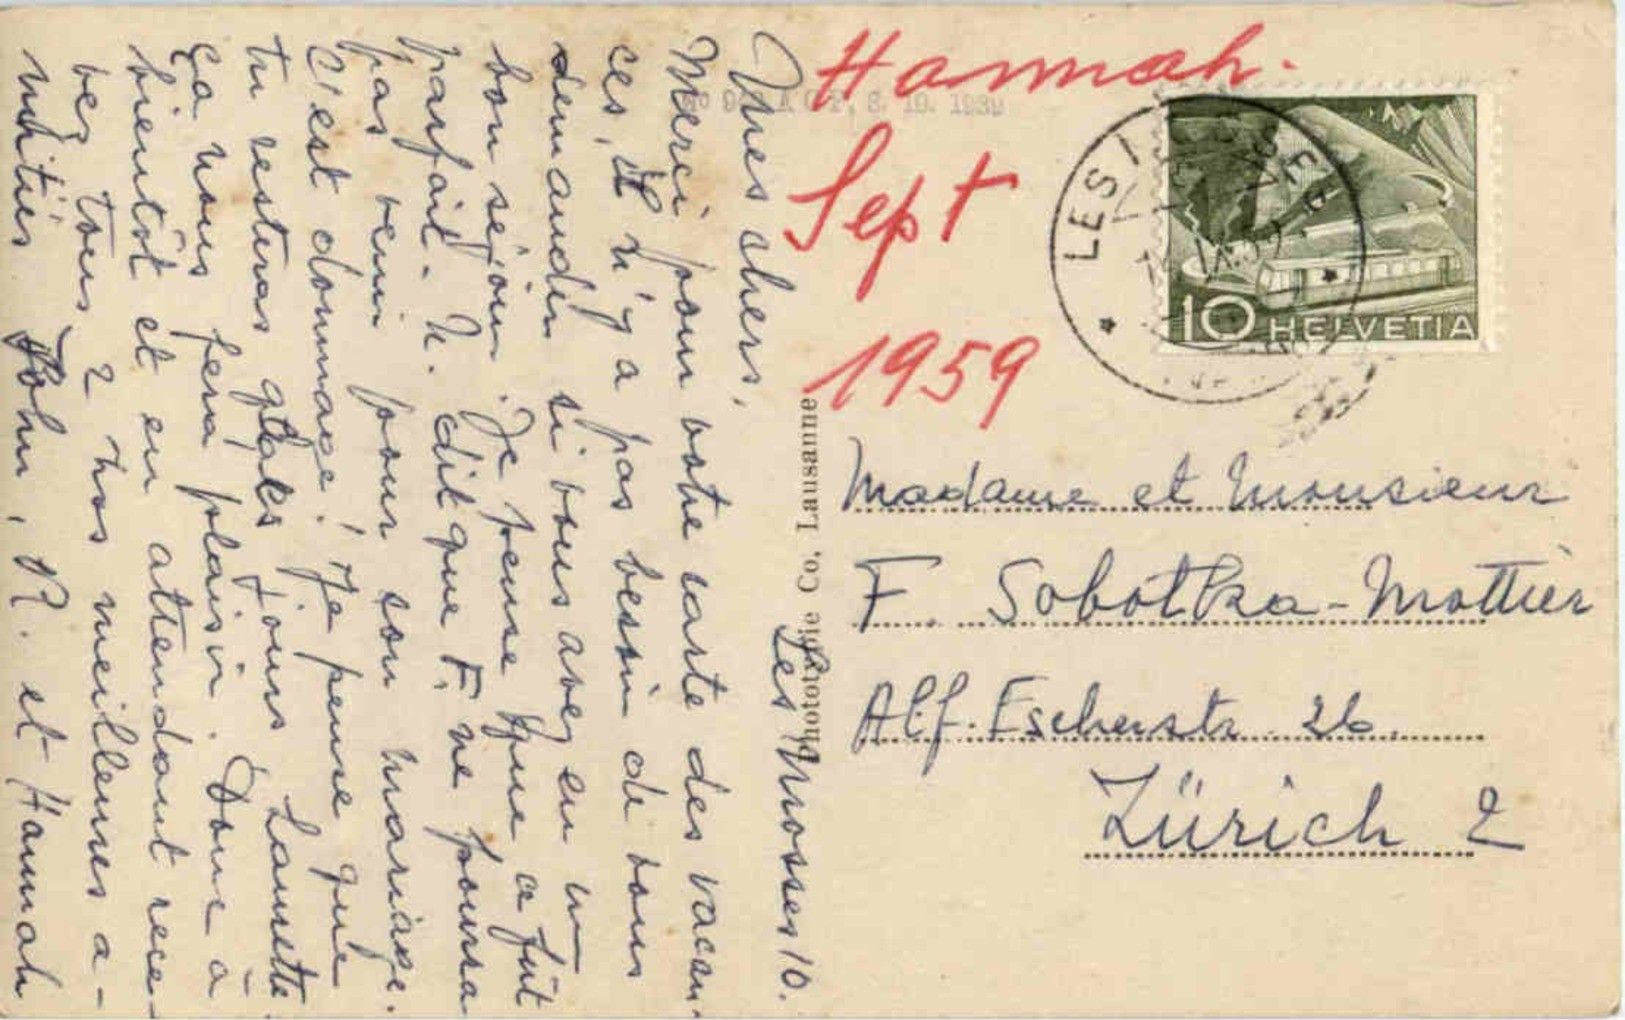 Les Mosses 10.
Mes chers,
Merci pour votre carte des vacan-
ces, Il n'y a pas besoin de vous
demander si vous avez eu un
bon séjour. Je pense que ce fût
parfait. N. dit que F. ne pourra
pas venir pour son mariage.
C'est dommage! Je pense que
tu resteras qlqes jours Lausette
Ça nous fera plaisir. Donc à
bientôt et en attendant rece-
vez tous 2 nos meilleures a-
mitiés John, R. et Hannah
Hannah.
Sept
1959
No A C F. 3. 10. 1939
LES
10 HELVETIA
Phototypie Co. Lausanne
Madame et Monsieur
F. Sobotka-Mottier
Alf. Escherstr. 26.
Zürich 2